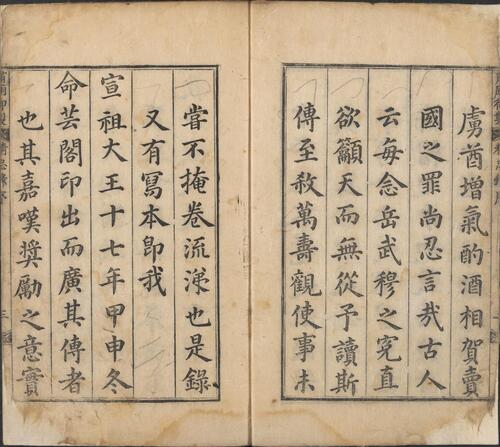 虜酋增氣酌酒相賀賣
國之罪尚忍言㦲古人
云每念岳武穆之寃直
欲籲天而無從予讀斯
傳至殺萬壽觀使事未
嘗不掩卷流涕也是錄
又有寫本卽我
宣祖大王十七年甲申冬
命芸閣印出而廣其傳者
也其嘉嘆奬勵之意實